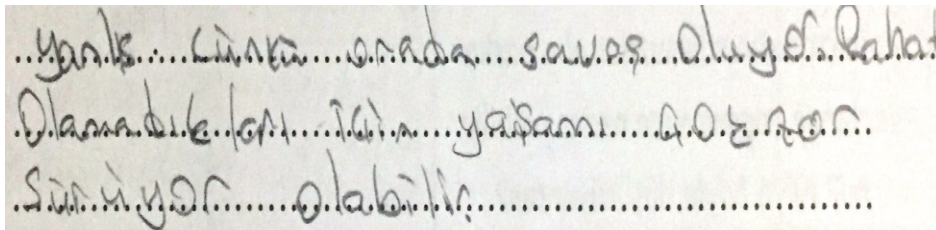 yanlış. Çünkü orada savaş oluyor. Rahat
Olamadıkları için yaşamı çok zor
sürüyor olabilir.